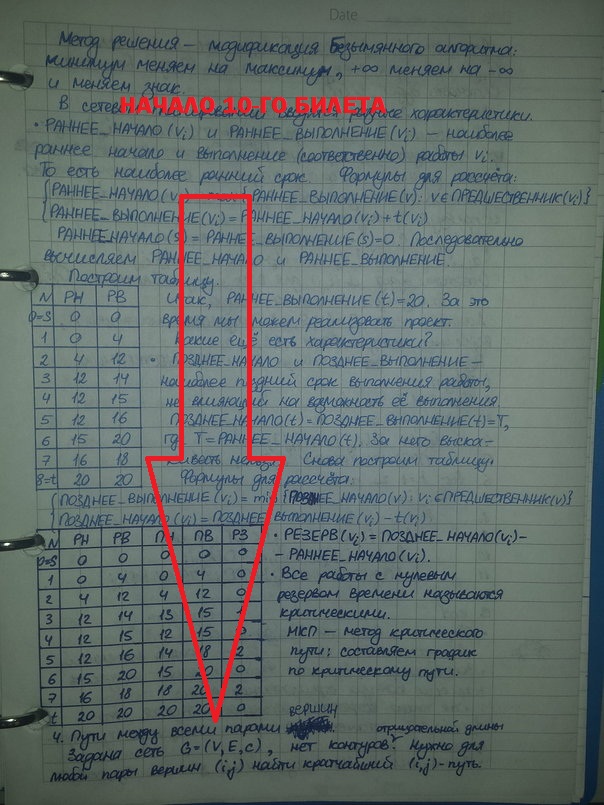 Date
Метод решения – модификация Безымянного алгоритма:
минимум меняем на максимум, +∞ меняем на -∞
и меняем знак.
НАЧАЛО 10-ГО БИЛЕТА
В характеристики.
• РАННЕЕ_НАЧАЛО(vi) и РАННЕЕ_ВЫПОЛНЕНИЕ(vi) – наиболее
раннее начало и выполнение (соответственно) работы vi.
То есть наиболее ранний срок. Формулы для рассчёта:
{РАННЕЕ_НАЧАЛО(v {РАННЕЕ_ВЫПОЛНЕНИЕ(v): v∈ПРЕДШЕСТВЕННИК(vi)}
{РАННЕЕ_ВЫПОЛНЕНИЕ(vi)=РАННЕЕ_НАЧАЛО(vi)+t(vi)
РАННЕЕ_НАЧАЛО(s)=РАННЕЕ_ВЫПОЛНЕНИЕ(s)=0. Последовательно
вычисляем РАННЕЕ_НАЧАЛО и РАННЕЕ_ВЫПОЛНЕНИЕ.
Построим таблицу.
N РН РВ
0=S 0 0
1 0 4
2 4 12
3 12 14
4 12 15
5 12 16
6 15 20
7 16 18
8=t 20 20
Итак, РАННЕЕ_ВЫПОЛНЕНИЕ(t)=20. За это
время мы можем реализовать проект.
Какие ещё есть характеристики?
• ПОЗДНЕЕ_НАЧАЛО и ПОЗДНЕЕ_ВЫПОЛНЕНИЕ –
наиболее поздний срок выполнения работы,
не влияющий на возможность её выполнения.
ПОЗДНЕЕ_НАЧАЛО(t)=ПОЗДНЕЕ_ВЫПОЛНЕНИЕ(t)=T,
где T=РАННЕЕ_НАЧАЛО(t). За него
Снова построим таблицу.
Формулы для рассчёта:
{ПОЗДНЕЕ_ВЫПОЛНЕНИЕ(vi)=min{ПОЗДНЕЕ_НАЧАЛО(v): vi∈ПРЕДШЕСТВЕННИК(v)}
{ПОЗДНЕЕ_НАЧАЛО(vi)=ПОЗДНЕЕ_ВЫПОЛНЕНИЕ(vi)-t(vi)
N РН РВ ПН ПВ РЗ
0=S 0 0 0 0 0
1 0 4 0 4 0
2 4 12 4 12 0
3 12 14 13 15 1
4 12 15 12 15 0
5 12 16 14 18 2
6 15 20 15 20 0
7 16 18 18 20 2
t 20 20 20 20 0
• РЕЗЕРВ(vi)=ПОЗДНЕЕ_НАЧАЛО(vi)-
-РАННЕЕ_НАЧАЛО(vi).
• Все работы с нулевым
резервом времени называются
критическими.
МКП – метод критического
пути; составляем график
по критическому пути.
4. Пути между всеми парами вершин
Задана сеть G=(V,E,c), нет контуров отрицательной длины. Нужно для
любой пары вершин (i,j) найти кратчайший (i,j)-путь.